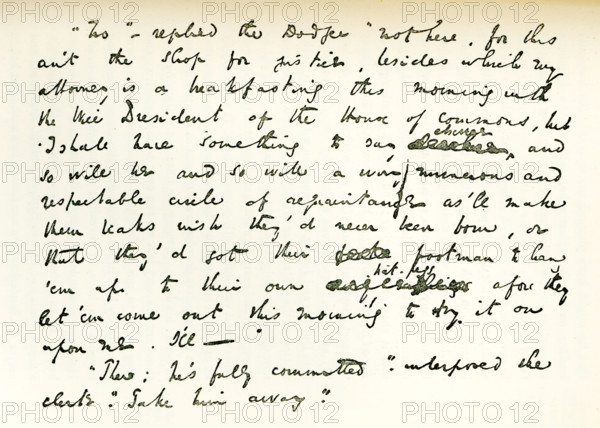 "No" - replied the Dodger "not here, for this
ain't the shop for justice, besides which my
attorney is a breakfasting this morning with
the Wice President of the House of Commons, but
I shall have something to say elsewer, and
so will he and so will a wery numerous and
respectable circle of acquaintance as'll make
them beaks wish they'd never been born, or
that they'd got their footman to hang
'em up to their own hat-pegs afore they
let 'em come out this morning to try it on
upon me. I'll — "
"There; he's fully committed". interposed the
clerk". Take him away".